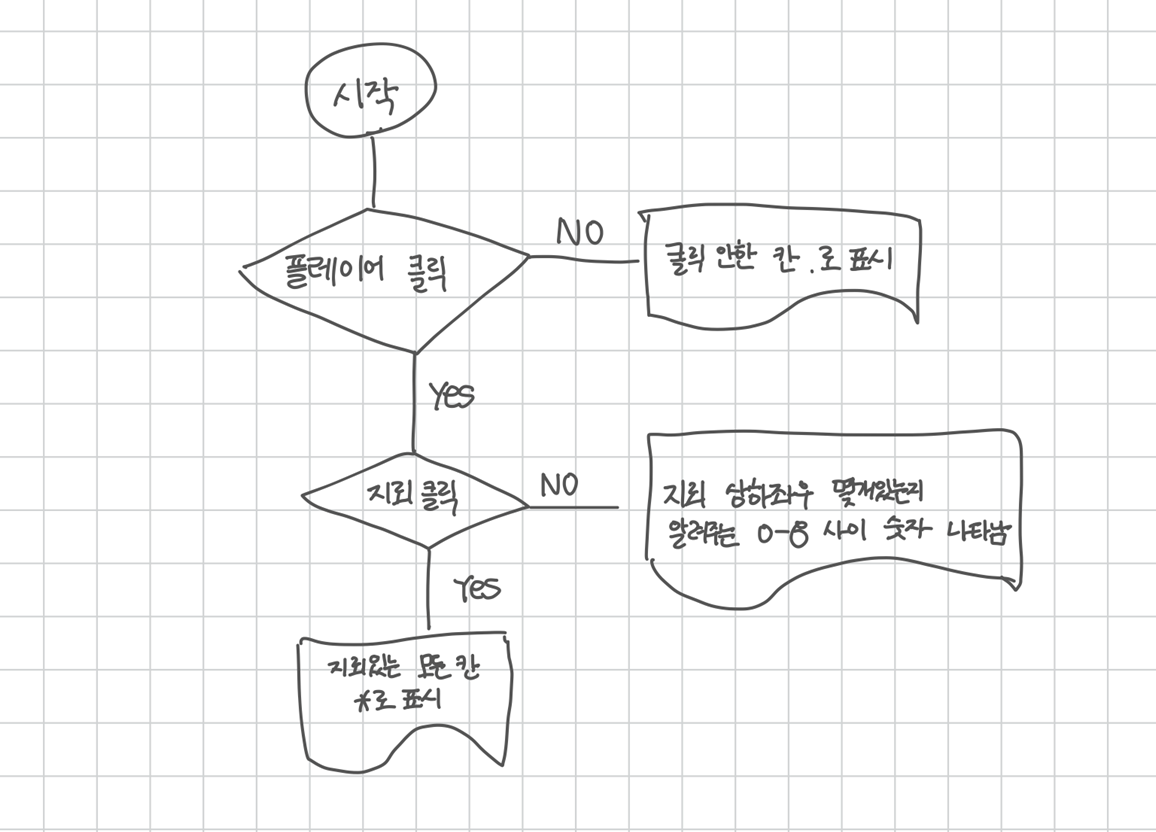 시작
플레이어 클릭
NO
클릭 안한 칸 .로 표시
yes
지뢰 클릭
NO
지뢰 상하좌우 몇개있는지
알려주는 0-8 사이 숫자 나타남
yes
지뢰있는 모든 칸
*로 표시